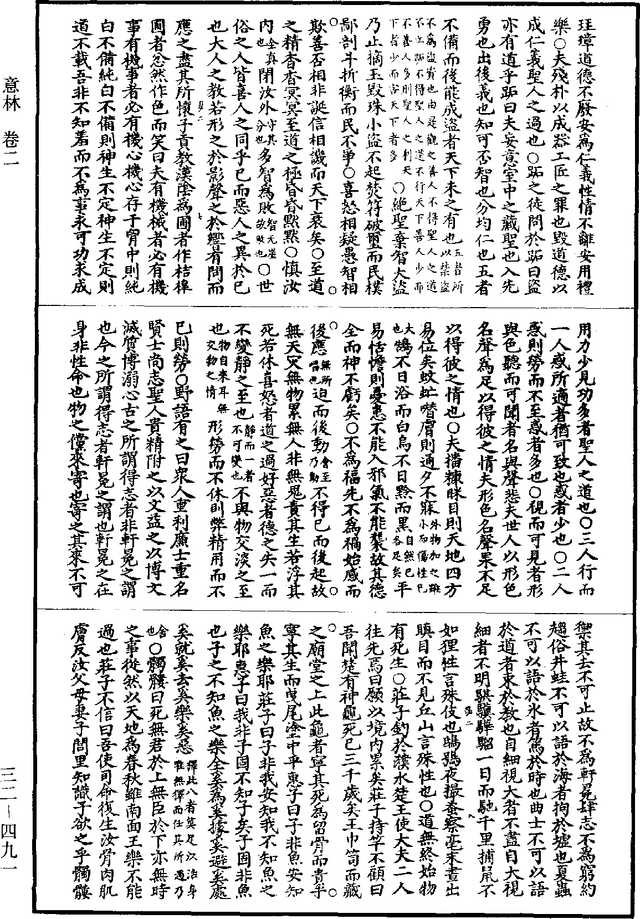 珪璋道德不廢安爲仁義性情不離安用禮
樂○夫殘朴以成器工匠之罪也毁道德以
成仁義聖人之過也○跖之徒問於跖曰盜
亦有道乎跖曰夫妄意室中之藏聖也入先
勇也出後義也知可否智也分均仁也五者
不備而後能成盜者天下未之有也
○絕聖棄智大盜
乃止擿玉毀珠小盜不起焚符破璽而民樸
鄙剖斗折衡而民不爭○喜怒相疑愚智相
欺善否相非誕信相譏而天下衰矣○至道
之精杳杳冥冥至道之極昏昏默默○慎汝
內閉汝外多智爲敗○世
俗之人皆喜人之同乎己而惡人之異於己
也大人之教若形之於影聲之於響有問而
應之盡其所懷子貢教漢陰爲圃者作桔槔
圃者忿然作色而笑曰夫有機械者必有機
事有機事者必有機心機心存于胷中則純
白不備純白不備則神生不定神生不定則
道不載吾非不知羞而不爲事求可功求成
用力少見功多者聖人之道也○三人行而
一人惑所適者猶可致也惑者少也○二人
惑則勞而不至惑者多也○視而可見者形
與色聽而可聞者名與聲悲夫世人以形色
名聲爲足以得彼之情夫形色名聲果不足
以得彼之情也○夫播糠眯目則天地四方
易位矣蚊虻噆膚則通夕不寐
鵠不日浴而白烏不日黔而黑○平
易恬憺則憂患不能入邪氣不能襲故其德
全而神不虧矣○不爲福先不爲禍始感而
後應迫而後動不得已而後起故
無天災無物累無人非無鬼責其生若浮其
死若休喜怒者道之過好惡者德之失一而
不變靜之至也不與物交淡之至
也形勞而不休則弊精用而不
已則勞○野語有之曰衆人重利廉士重名
賢士尚志聖人貴精附之以文益之以博文
滅質博溺心古之所謂得志者非軒冕之謂
也今之所謂得志者軒冕之謂也軒冕之在
身非性命也物之儻來寄也寄之其來不可
禦其去不可止故不爲軒冕肆志不爲窮約
趨俗井蛙不可以語於海者拘於墟也夏蟲
不可以語於氷者篤於時也曲士不可以語
於道者束於教也自細視大者不盡自大視
細者不明騏驥驊騮一日而馳千里捕鼠不
如狸性言殊伎也鴟鵂夜撮蚤察毫末晝出
瞋目而不見丘山言殊性也○道無終始物
有死生○莊子釣於濮水楚王使大夫二人
往先焉曰願以境內累矣莊子持竿不顧曰
吾聞楚有神龜死已三千歲矣王巾笥而藏
之廟堂之上此龜者寧其死爲留骨而貴乎
寧其生而曳尾塗中乎惠子曰子非魚安知
魚之樂耶莊子曰子非我安知我不知魚之
樂耶惠子曰我非子固不知子矣子固非魚
也子之不知魚之樂全矣奚爲奚據奚避奚處
奚就奚去奚樂奚惡
○髑髏曰死無君於上無臣於下亦無時
之事從然以天地爲春秋雖南面王樂不能
過也莊子不信曰吾使司命復生汝骨肉肌
膚反汝父母妻子閭里知識子欲之乎髑髏
意林　卷二
三二—四九一